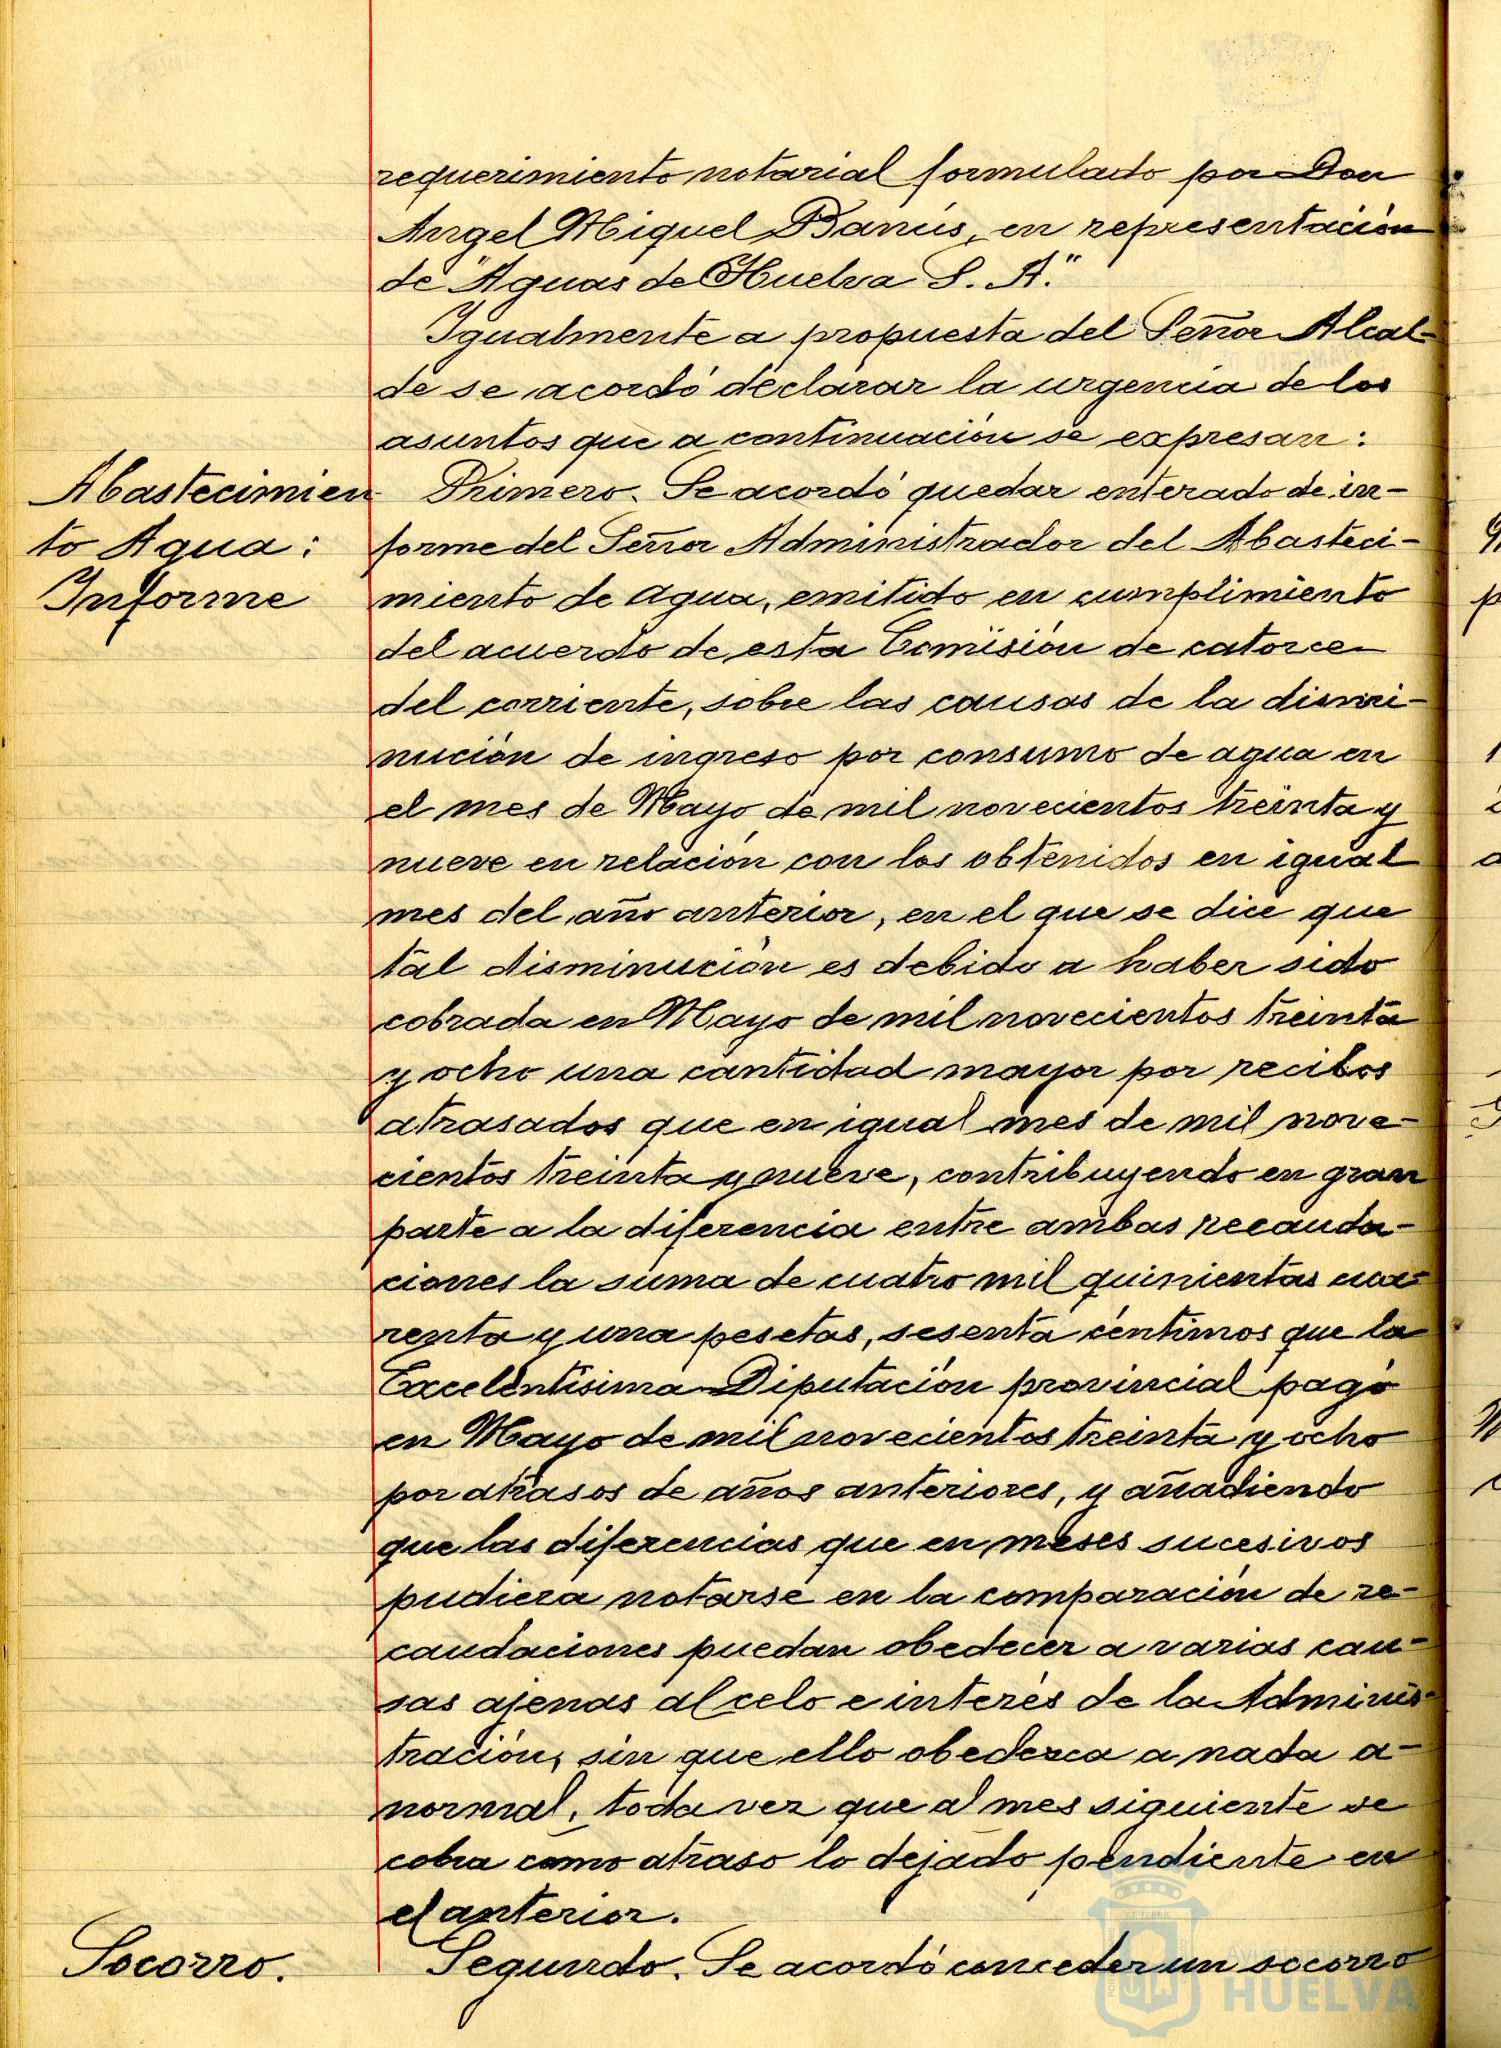 requerimiento notarial formulado por Don
Angel Miguel Banús, en representación
de "Aguas de Huelva S. A."
Igualmente a propuesta del Señor Alcal-
de se acordó declarar la urgencia de los
asuntos que a continuación se expresan:
Abastecimien
to Agua:
Informe
Primero. Se acordó quedar enterado de in-
forme del Señor Administrador del Abasteci-
miento de Agua, emitido en cumplimiento
del acuerdo de esta Comisión de catorce
del corriente, sobre las causas de la dismi-
nución de ingreso por consumo de agua en
el mes de Mayo de mil novecientos treinta y
nueve en relación con los obtenidos en igual
mes del año anterior, en el que se dice que
tal disminución es debido a haber sido
cobrada en Mayo de mil novecientos treinta
y ocho una cantidad mayor por recibos
atrasados que en igual mes de mil nove-
cientos treinta y nueve, contribuyendo en gran
parte a la diferencia entre ambas recauda-
ciones la suma de cuatro mil quinientas cua-
renta y una pesetas, sesenta céntimos que la
Excelentísima Diputación provincial pagó
en Mayo de mil novecientos treinta y ocho
por atrasos de años anteriores, y añadiendo
que las diferencias que en meses sucesivos
pudiera notarse en la comparación de re-
caudaciones puedan obedecer a varias cau-
sas ajenas al celo e interés de la Adminis-
tración, sin que ello obedezca a nada a-
normal, toda vez que al mes siguiente se
cobra como atraso lo dejado pendiente en
el anterior.
Socorro.
Segundo. Se acordó conceder un socorro
Ayuntamiento
HUELVA